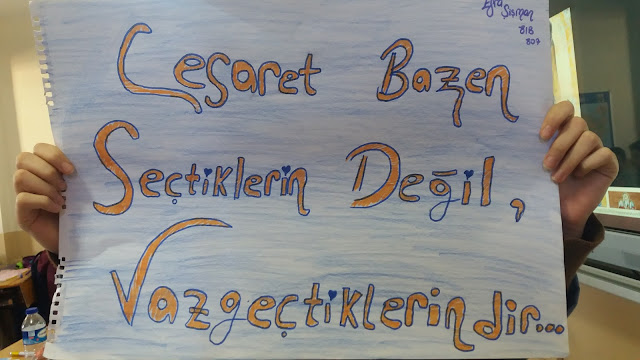 Esra
Şişman
818
807
Cesaret Bazen
Seçtiklerin Değil,
Vazgeçtiklerindir...